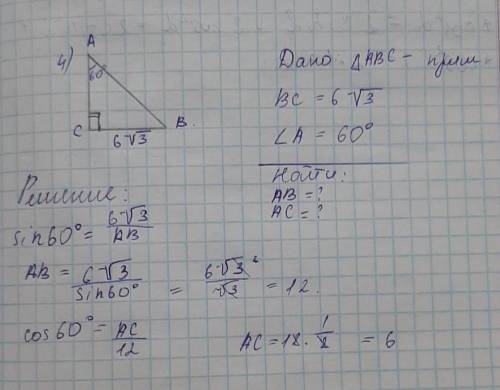 4)
A
60°
C
B.
6√3
Дано: △ABC - прям.
BC = 6√3
∠A = 60°
Найти:
AB = ?
AC = ?
Решение:
sin60° = 6√3/AB
AB = 6√3/sin60° = 6√3²/√3 = 12.
cos60° = AC/12
AC = 12 · 1/2 = 6